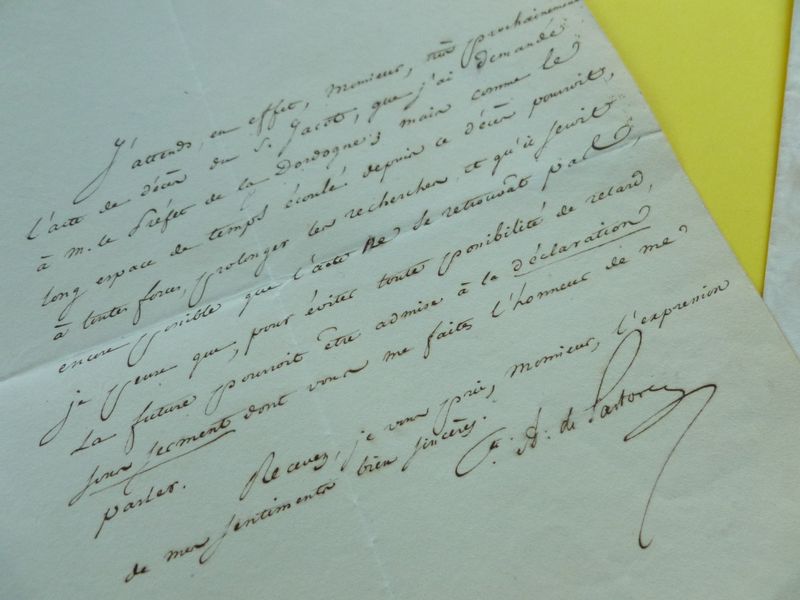 J'attends, en effet, Monsieur, très prochainement
l'acte de décès du Sr. Jacot, que j'ai demandé
à m. le Préfet de la Dordogne; mais comme le
long espace de temps écoulé depuis ce décès pouroit,
à toute force, prolonger les recherches, et qu'il seroit
encore possible que l'acte ne se retrouvât pas,
je pense que, pour éviter toute possibilité de retard,
La future pouroit être admise à la déclaration
sous serment dont vous me faites l'honneur de me
parler. Recevez, je vous prie, Monsieur, l'expression
de mes sentiments bien sincères.
A. de Pastoret